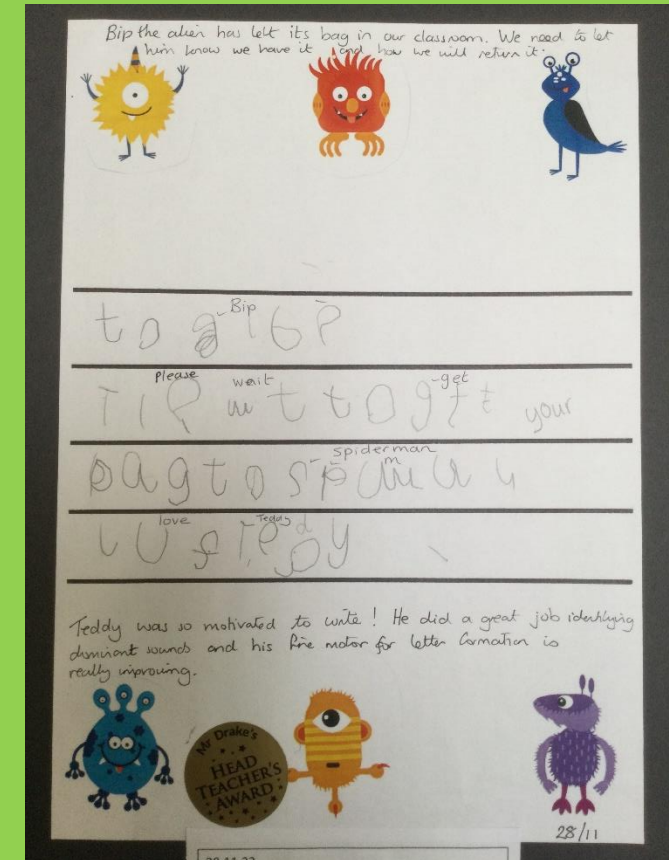 Bip the alien has left its bag in our classroom. We need to let
him know we have it and how we will return it.
Bip
to
Please wait get
your
spiderman
bag to
love Teddy
Teddy was so motivated to write! He did a great job identifying
dominant sounds and his fine motor for letter formation is
really improving.
Mr Drake's
HEAD
TEACHER'S
AWARD
28/11